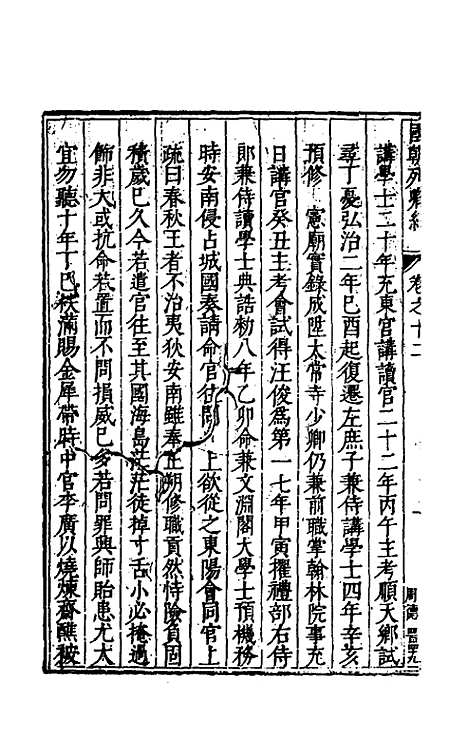 國朝列卿紀 卷之十二
講學士二十年充東宮講讀官二十二年丙午主考順天鄉試
尋丁憂弘治二年己酉起復遷左庶子兼侍講學士四年辛亥
預修 憲廟實錄成陞太常寺少卿仍兼前職掌翰林院事充
日講官癸丑主考會試得汪俊爲第一七年甲寅擢禮部右侍
郎兼侍讀學士典誥勑八年乙卯命兼文淵閣大學士預機務
時安南侵占城國奏請命官往 上欲從之東陽會同官上
疏曰春秋王者不治夷狄安南雖奉正朔修職貢然恃險負固
積歲已久今若遣官往至其國海島茫茫徒掉寸舌小必掩過
飾非大或抗命若置而不問損威已多若問罪興師貽患尤大
宜勿聽十年丁巳秩滿賜金犀帶時中官李廣以燒煉齋醮被